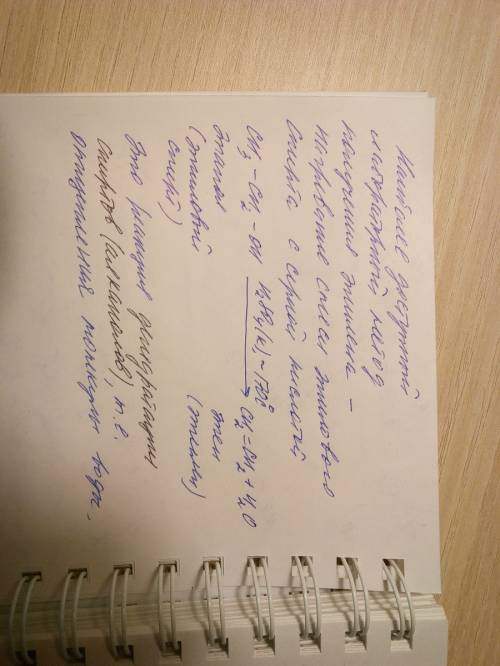 Наиболее доступный
лабораторный метод
получения этилена –
нагревание смеси этилового
спирта с серной кислотой
CH₃ – CH₂ – OH H₂SO₄(к) ~170° → CH₂ = CH₂ + H₂O
этанол этен
(этиловый (этилен)
спирт)
Это реакция дегидратации
спиртов (алканолов), т.е.
отщепления молекулы воды.